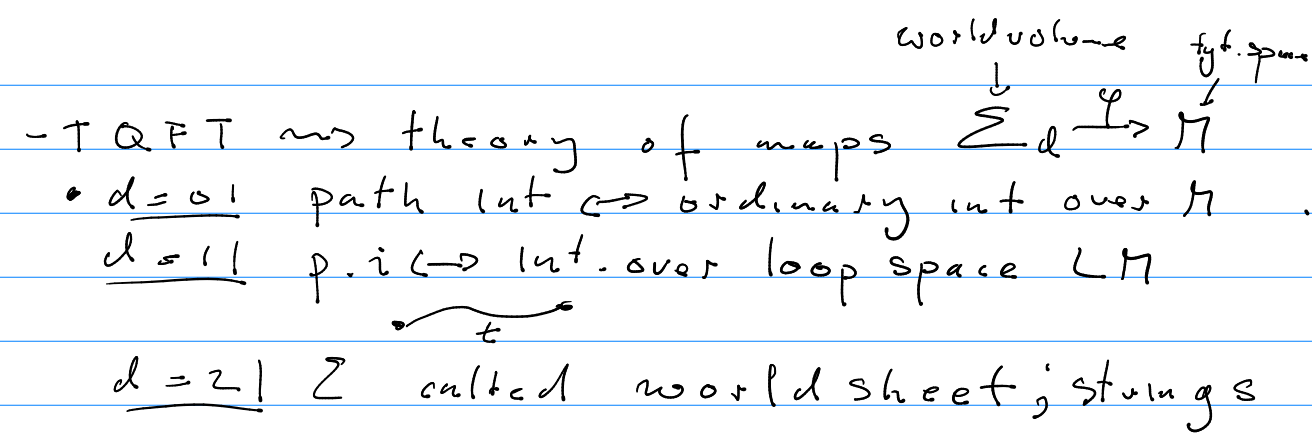 worldvolume tgt. space
- TQFT ⇝ theory of maps Σ_d →^φ M
• d=0| path int ↔ ordinary int over M .
d=1| p.i ↔ int. over loop space LM
t
d=2| Σ called worldsheet; strings